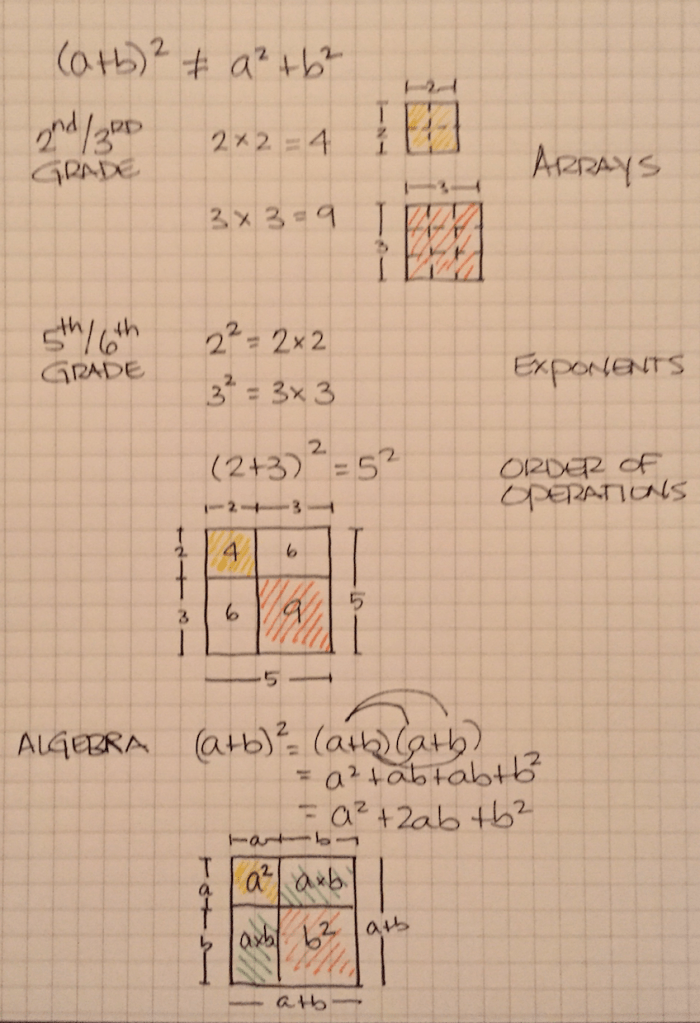 (a+b)² ≠ a² + b²
2nd/3RD GRADE
2 × 2 = 4
2
2
ARRAYS
3 × 3 = 9
3
3
5th/6th GRADE
2² = 2×2
3² = 3×3
EXPONENTS
(2+3)² = 5²
ORDER OF
OPERATIONS
2 3
2 4 6
3 6 9 5
5
ALGEBRA (a+b)² = (a+b)(a+b)
= a² + ab + ab + b²
= a² + 2ab + b²
a b
a a² a×b
b a×b b² a+b
a+b